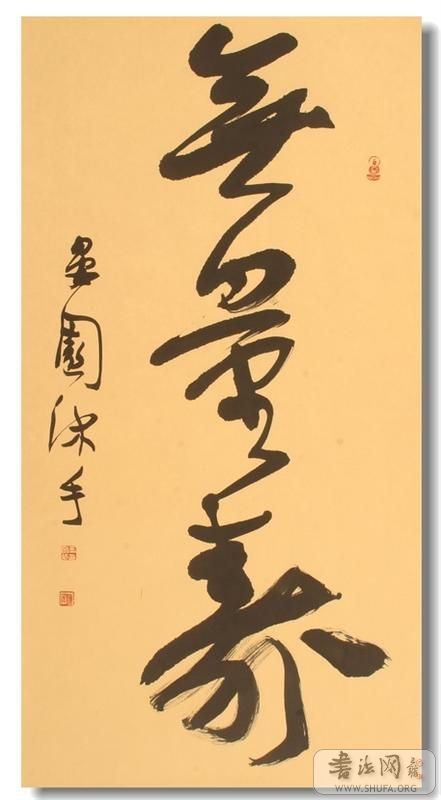 無量壽
園沐手
書法网
WWW.SHUFA.ORG